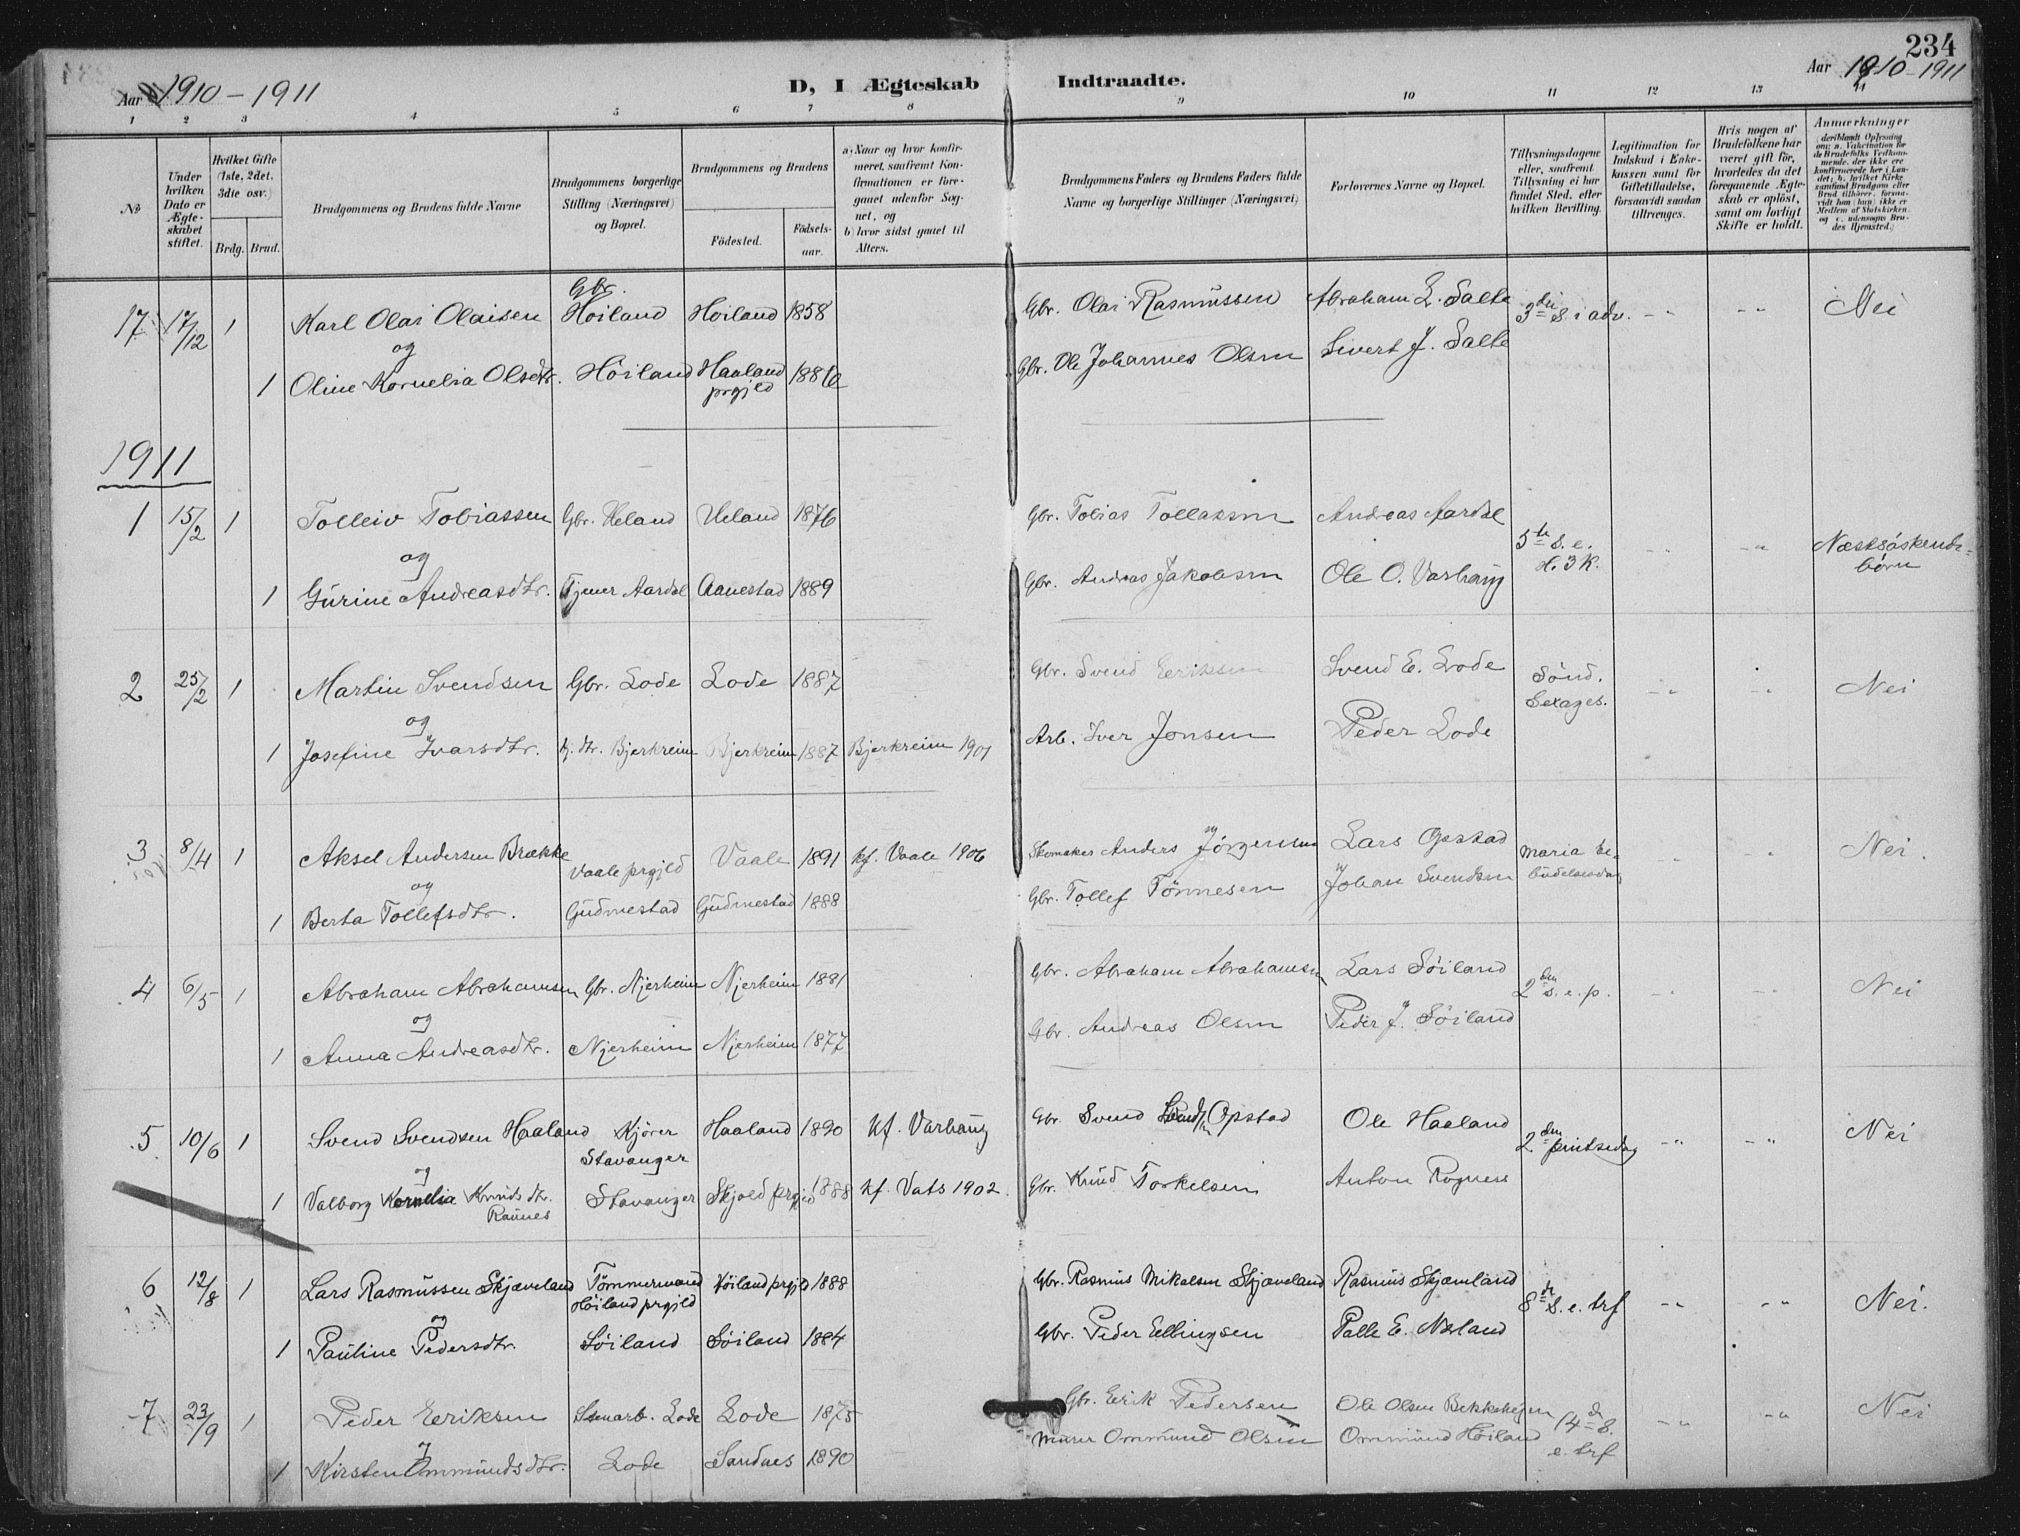 234
Aar 1910 - 1911
D, I Ægteskab Indtraadte.
Aar 1910 - 1911
1 2 3 4 5 6 7 8 9 10 11 12 13 14
No
Under hvilken Dato er Ægteskabet stiftet.
Hvilket Gifte (1ste, 2det, 3die osv.)
Brdg. Brud.
Brudgommens og Brudens fulde Navne
Brudgommens borgerlige Stilling (Næringsvei) og Bopæl.
Brudgommens og Brudens
Födested. Födselsaar.
a) Naar og hvor konfirmeret, saafremt Konfirmationen er foregaaet udenfor Sognet, og
b) hvor sidst gaaet til Alters.
Brudgommens Faders og Brudens Faders fulde Navne og borgerlige Stillinger (Næringsvei)
Forlovernes Navne og Bopæl.
Tillysningsdagene eller, saafremt Tillysning ei har fundet Sted, efter hvilken Bevilling.
Legitimation for Indskud i Enkekassen samt for Giftetilladelse, forsaavidt saadan tiltrænges.
Hvis nogen af Brudefolkene har været gift för, hvorledes da det foregaaende Ægteskab er oplöst, samt om lovligt Skifte er holdt.
Anmærkninger
deriblandt Oplysning om: a. Vakcination for de Brudefolks Vedkommende, der ikke ere konfirmerede her i Landet; b. hvilket Kirkesamfund Brudgom eller Brud tilhörer, forsavidt han (hun) ikke er Medlem af Statskirken, og c. udensogns Brudes Hjemsted.)
17 17/12 1 Karl Olai Olaisen Gbr. Höiland Höiland 1858 Gbr. Olai Rasmussen Abraham L. Salte 3die S. i adv. -"- -"- Nei
og
1 Oline Kornelia Olsdtr. Höiland Haaland prgjld Gbr. Ole Johannes Olsen Sivert J. Salte
1911
1 15/2 1 Tolleiv Tobiassen Gbr. Ueland Ueland 1876 Gbr. Tobias Tollaksen Andreas Aardal 5te S. e. H. 3 K. -"- -"- Næstsöskendebörn
og
1 Gurine Andreasdtr. Tjener Aardal Aanestad 1889 Gbr. Andreas Jakobsen Ole O. Varhaug
2 25/2 1 Martin Svendsen Gbr. Lode Lode 1887 Gbr. Svend Eeriksen Svend E. Lode Sönd. Sexages. -"- -"- Nei
og
1 Josefine Ivarsdtr. Bjerkreim Bjerkreim 1887 Bjerkreim 1901 Arb. Iver Jonsen Peder Lode
3 8/4 1 Aksel Andersen Brække Vaale prgjld Vaale 1891 kf. Vaale 1906 Skomaker Anders Jörgensen Lars Opstad Maria Bebudelsesdag -"- -"- Nei.
og
1 Berta Tollefsdtr. Gudmestad Gudmestad 1888 Gbr. Tollef Tönnesen Johan Svendsen
4 6/5 1 Abraham Abrahamsen Gbr. Njerheim Njerheim 1881 Gbr. Abraham Abrahamsen Lars Söiland 2den S. e. p. -"- -"- Nei
og
1 Anna Andreasdtr. Njerheim Njerheim 1877 Gbr. Andreas Olsen Peder J. Söiland
5 10/6 1 Svend Svendsen Haaland Kjörer Stavanger Haaland 1890 kf. Varhaug Gbr. Svend Opstad Ole Haaland 2den pintsedag -"- -"- Nei
og
1 Valborg Kornelia Knudsdtr. Raunes Stavanger Skjold prgjld 1888 kf. Vats 1902. Gbr. Knud Torkelsen Anton Rognes
6 12/8 1 Lars Rasmussen Skjæveland Tömmermand Höiland prgjld Höiland prgjld 1888 Gbr. Rasmus Mikalsen Skjæveland Rasmus Skjæveland 8de S. e. trf -"- -"- Nei.
og
1 Pauline Pedersdtr. Söiland Söiland 1884 Gbr. Peder Ellingsen Palle E. Nærland
7 23/9 1 Peder Eeriksen Stenarb. Lode Lode 1875 Gbr. Eerik Pedersen Ole Olsen 14de S. e. trf -"- -"- Nei
1 Kirsten Ommundsdtr. Lode Sandnes 1890 Murer Ommund Olsen Ommund Höiland